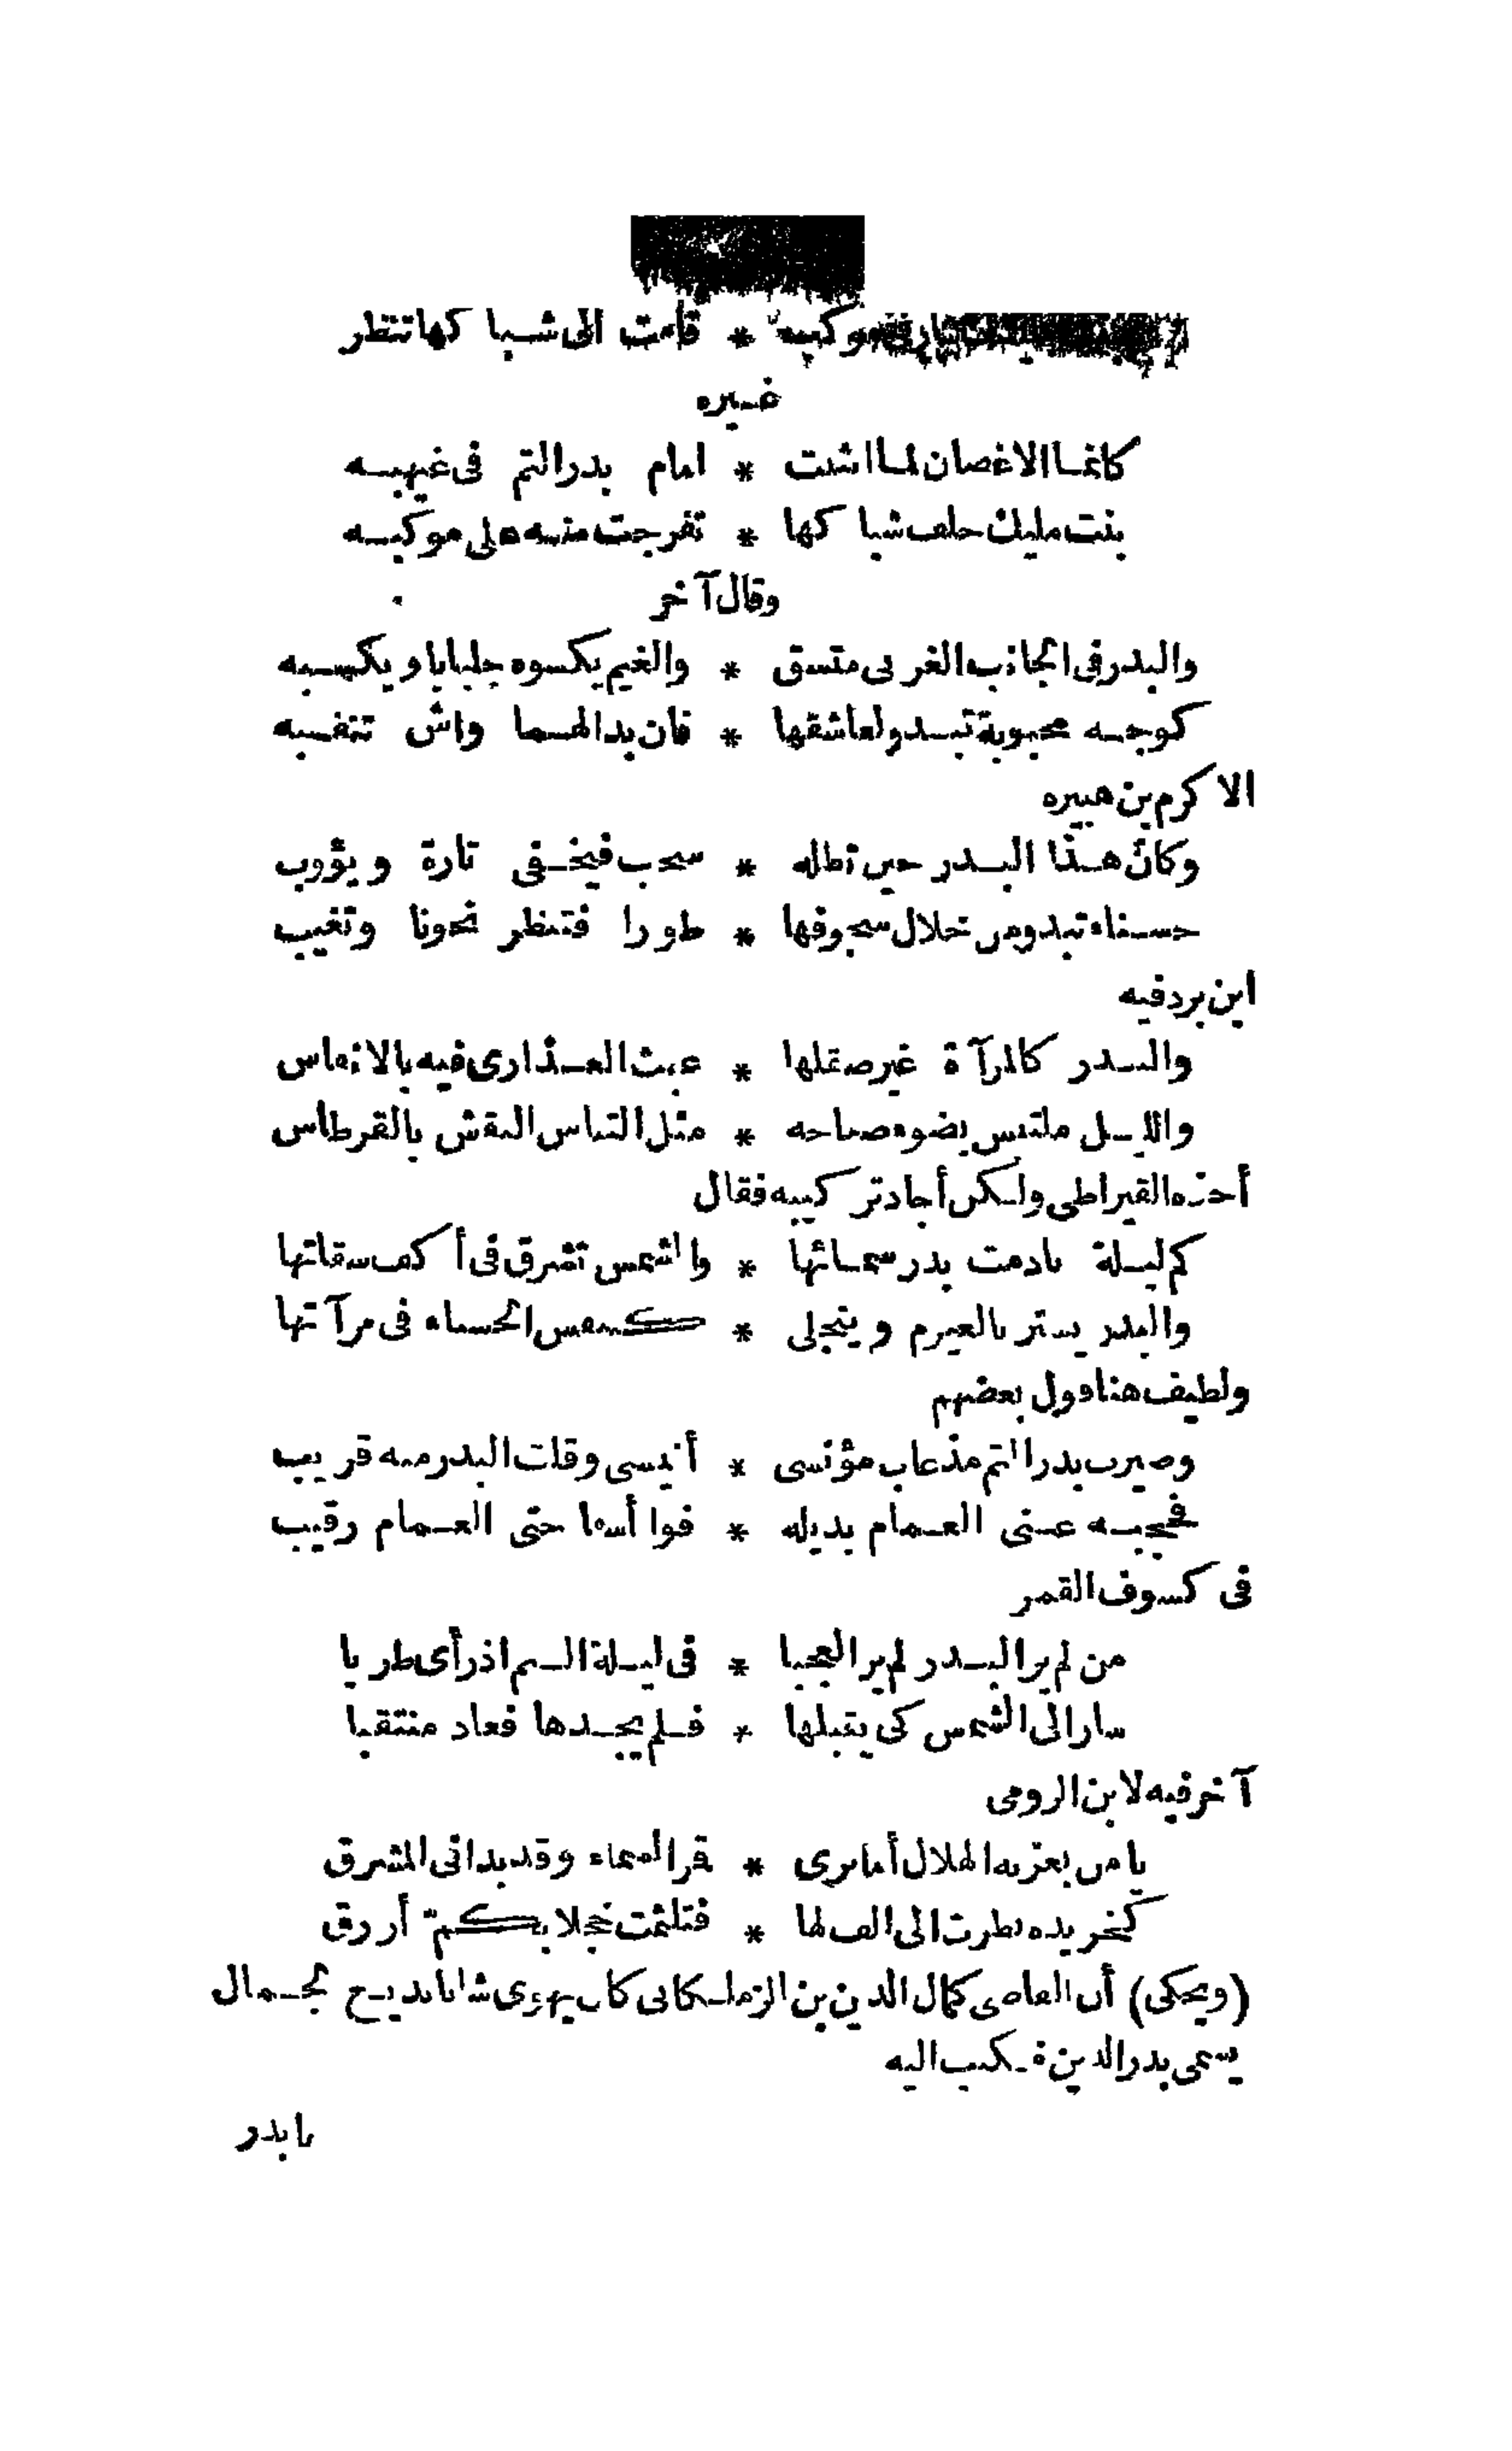 فى موكبه * قامت الى شبا كها تنظر
غيره
كانما الاغصان لما انثنت * امام بدر التم فى غيهبه
بنت مليك خلف شبا كها * تفرجت منه على موكبه
وقال آخر
والبدر فى الجانب الغربى متسق * والغيم يكسوه جلبابا ويكسبه
كوجه محبوبة تبدو لعاشقها * فان بدا لهما واش تنفسبه
الاكرم بن هبيره
وكأن هذا البدر حين تظله * سحب فيخفى تارة ويؤوب
حسناء تبدو من خلال سجوفها * طورا فتنظر نحونا وتغيب
ابن برد فيه
والبدر كالمرآة غير صقلها * عبث العذارى فيه بالانفاس
والليل ملتبس بضوء صباحه * مثل التباس النقش بالقرطاس
أخذه القيراطى ولكن أجاد تركيبه فقال
كم ليلة نادمت بدر سمائها * والشمس تشرق فى أكف سقاتها
والبدر يستر بالغيوم وينجلى * كتنفس الحسناء فى مرآتها
ولطيف هنا قول بعضهم
وصيرت بدر التم مذ غاب مؤنسى * أنيسى وقلت البدر منه قريب
فحجبه عنى الغمام بذيله * فوا أسفا حتى الغمام رقيب
فى كسوف القمر
من لم ير البدر لم ير العجبا * فى ليلة التم اذ رأى طربا
سار الى الشمس كى يقبلها * فلم يجدها فعاد منتقبا
آخر فيه لابن الرومى
يا من بعزبه الهلال أما ترى * قمر السماء وقد بدا فى المشرق
كخريدة نظرت الى الف لها * فتلثمت خجلا بكم أزرق
(ويحكى) أن القاضى كمال الدين بن الزملكانى كان يهوى شابا بديع الجمال
يسمى بدر الدين فكتب اليه
يا بدر